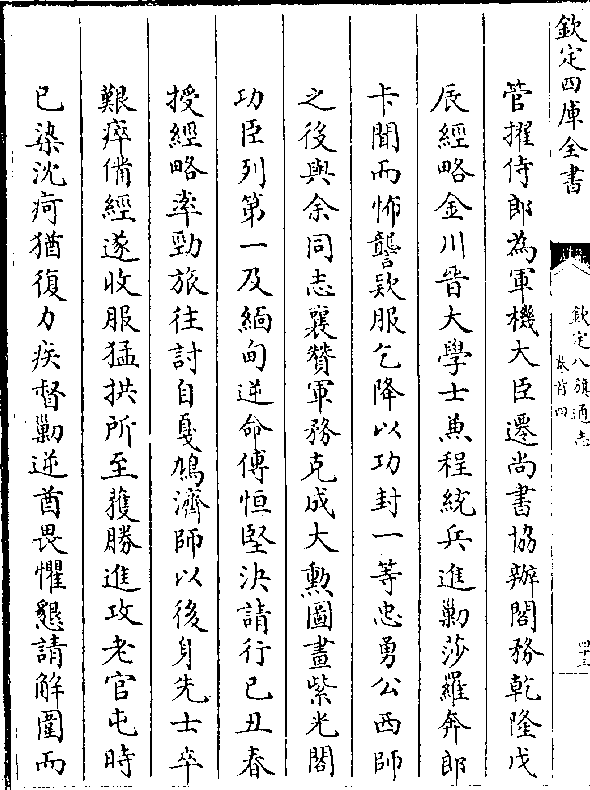 欽定四庫全書
欽定八旗通志
卷首四
四十三
管擢侍郎為軍機大臣遷尚書協辦閣務乾隆戊
辰經略金川晋大學士兼程統兵進勦莎羅奔郎
卡聞而怖讋欵服乞降以功封一等忠勇公西師
之後與余同志襄贊軍務克成大勲圖畫紫光閣
功臣列第一及緬甸逆命傅恒堅決請行已丑春
授經略率勁旅往討自戛鳩濟師以後身先士卒
艱瘁備經遂收服猛拱所至獲勝進攻老官屯時
已染沈疴猶復力疾督勦逆酋畏懼懇請解圍而